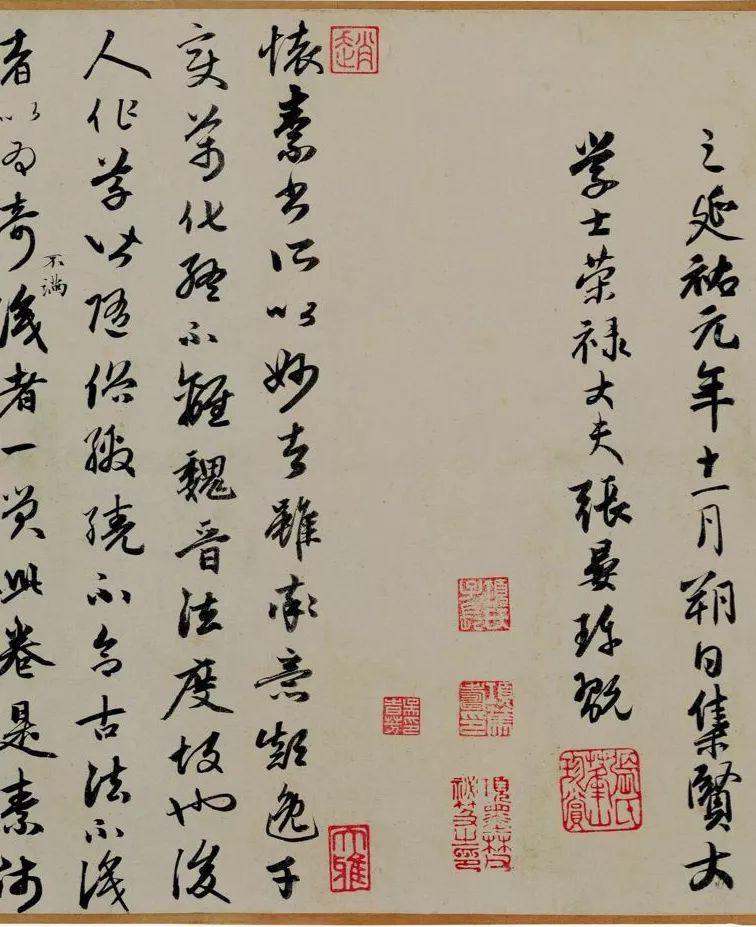 之延祐元年十一月朔日集賢大
學士榮祿大夫張晏珍翫
趙
大雅
懷素書所以妙者雖率意顛逸千
變萬化終不離魏晉法度故也後
人作草皆隨俗繳繞不合古法不識
者以為奇不滿識者一笑此卷是素師